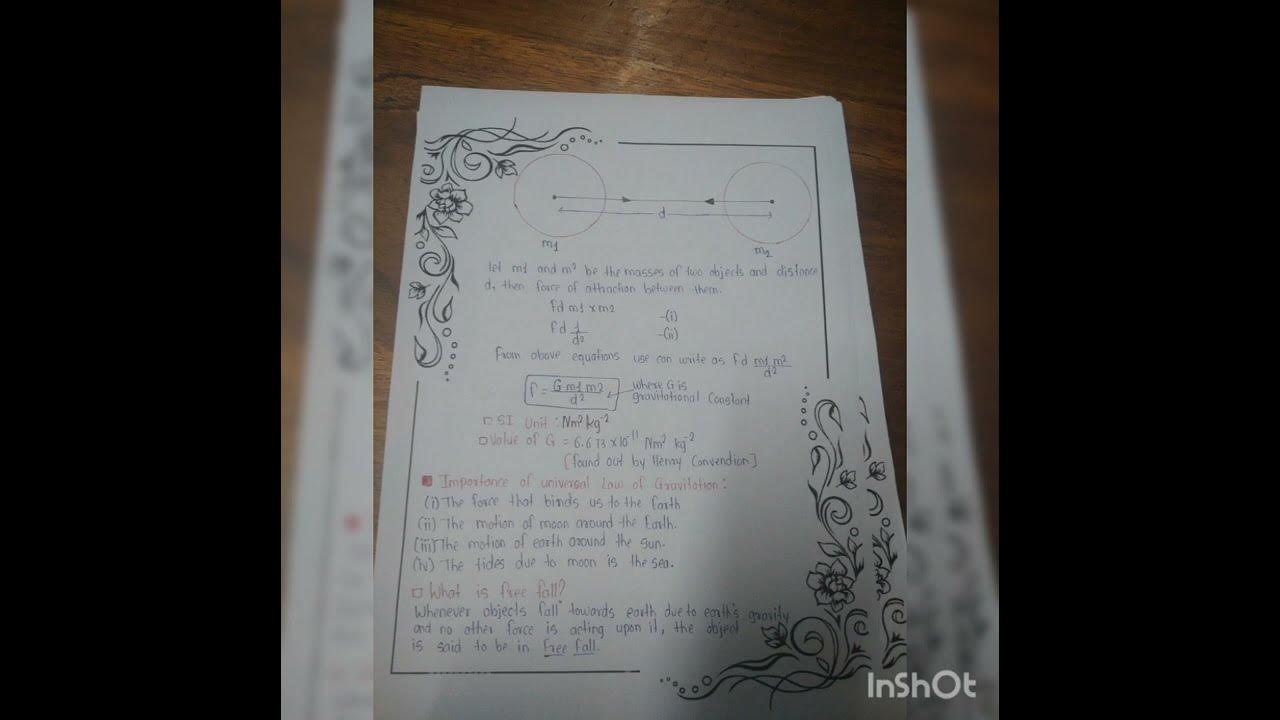 d
m1
m2
let m1 and m² be the masses of two objects and distance
d, then force of attraction between them.
fd m1 x m2 -(i)
fd 1/d² -(ii)
From above equations use can write as fd m1 m²/d²
f = G m1 m2/d² where G is
gravitational Constant
SI Unit : Nm² kg⁻²
Value of G = 6.673 x 10⁻¹¹ Nm² kg⁻²
[found out by Henry Convendion]
Importance of universal Law of Gravitation :
(i) The force that binds us to the Earth
(ii) The motion of moon around the Earth.
(iii) The motion of earth around the sun.
(iv) The tides due to moon is the sea.
What is free fall?
Whenever objects fall towards earth due to earth's gravity
and no other force is acting upon it, the object
is said to be in free fall.
InShOt